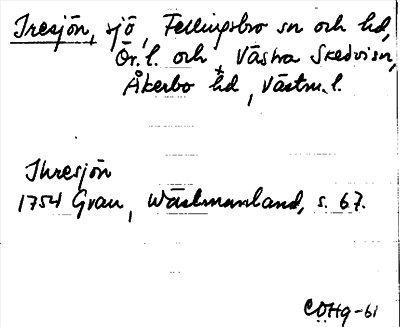 Iresjön, sjö, Fellingsbro sn och hd,
Ör. l. och, Västra Skedvi sn,
Åkerbo hd, Västm. l.
Ihresjön
1754 Grau, Wästmanland, s. 67.
CDHg-61